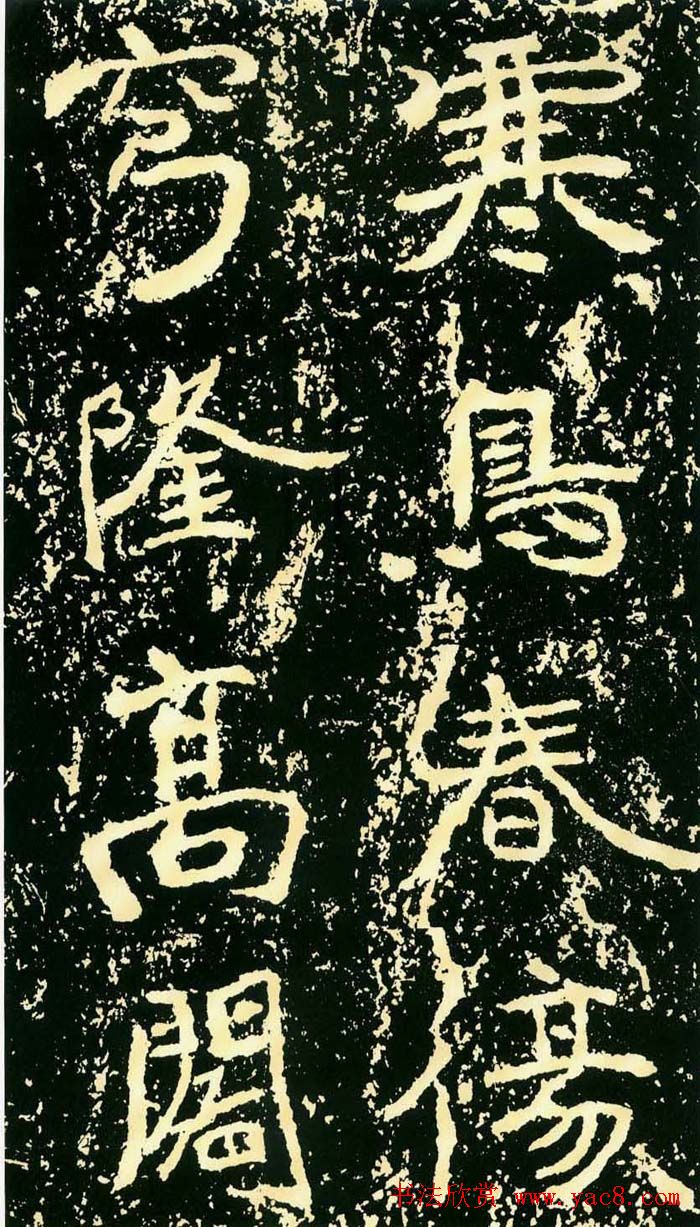 寒鳥春傷
穹隆高閣
书法欣赏 www.yac8.com